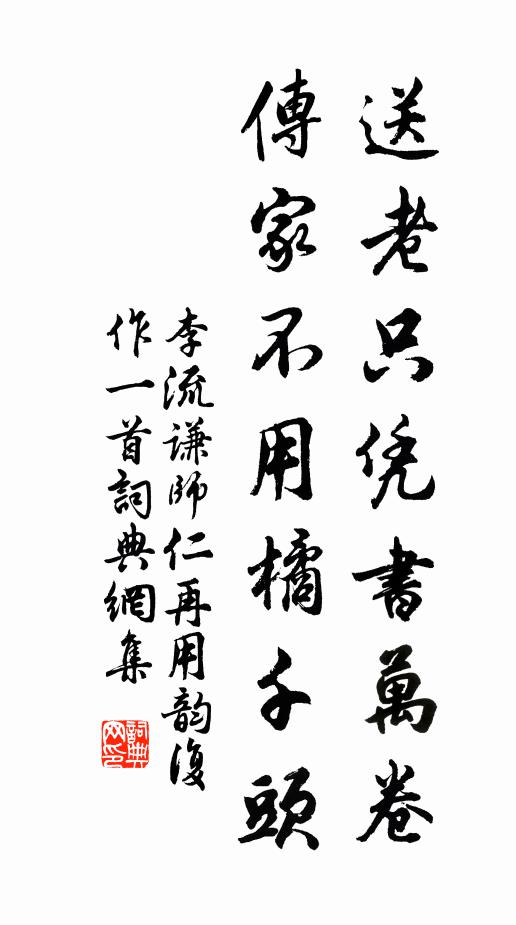 送老只凭書萬卷
傳家不用橘千頭
李流謙師仁再用韵復
作一首詞典網集
詞典网印